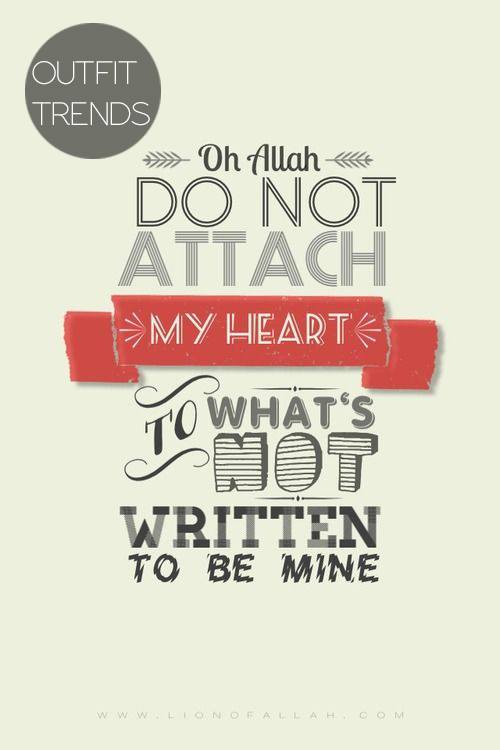 OUTFIT
TRENDS
Oh Allah
DO NOT
ATTACH
MY HEART
TO WHAT'S
NOT
WRITTEN
TO BE MINE
WWW.LIONOFALLAH.COM